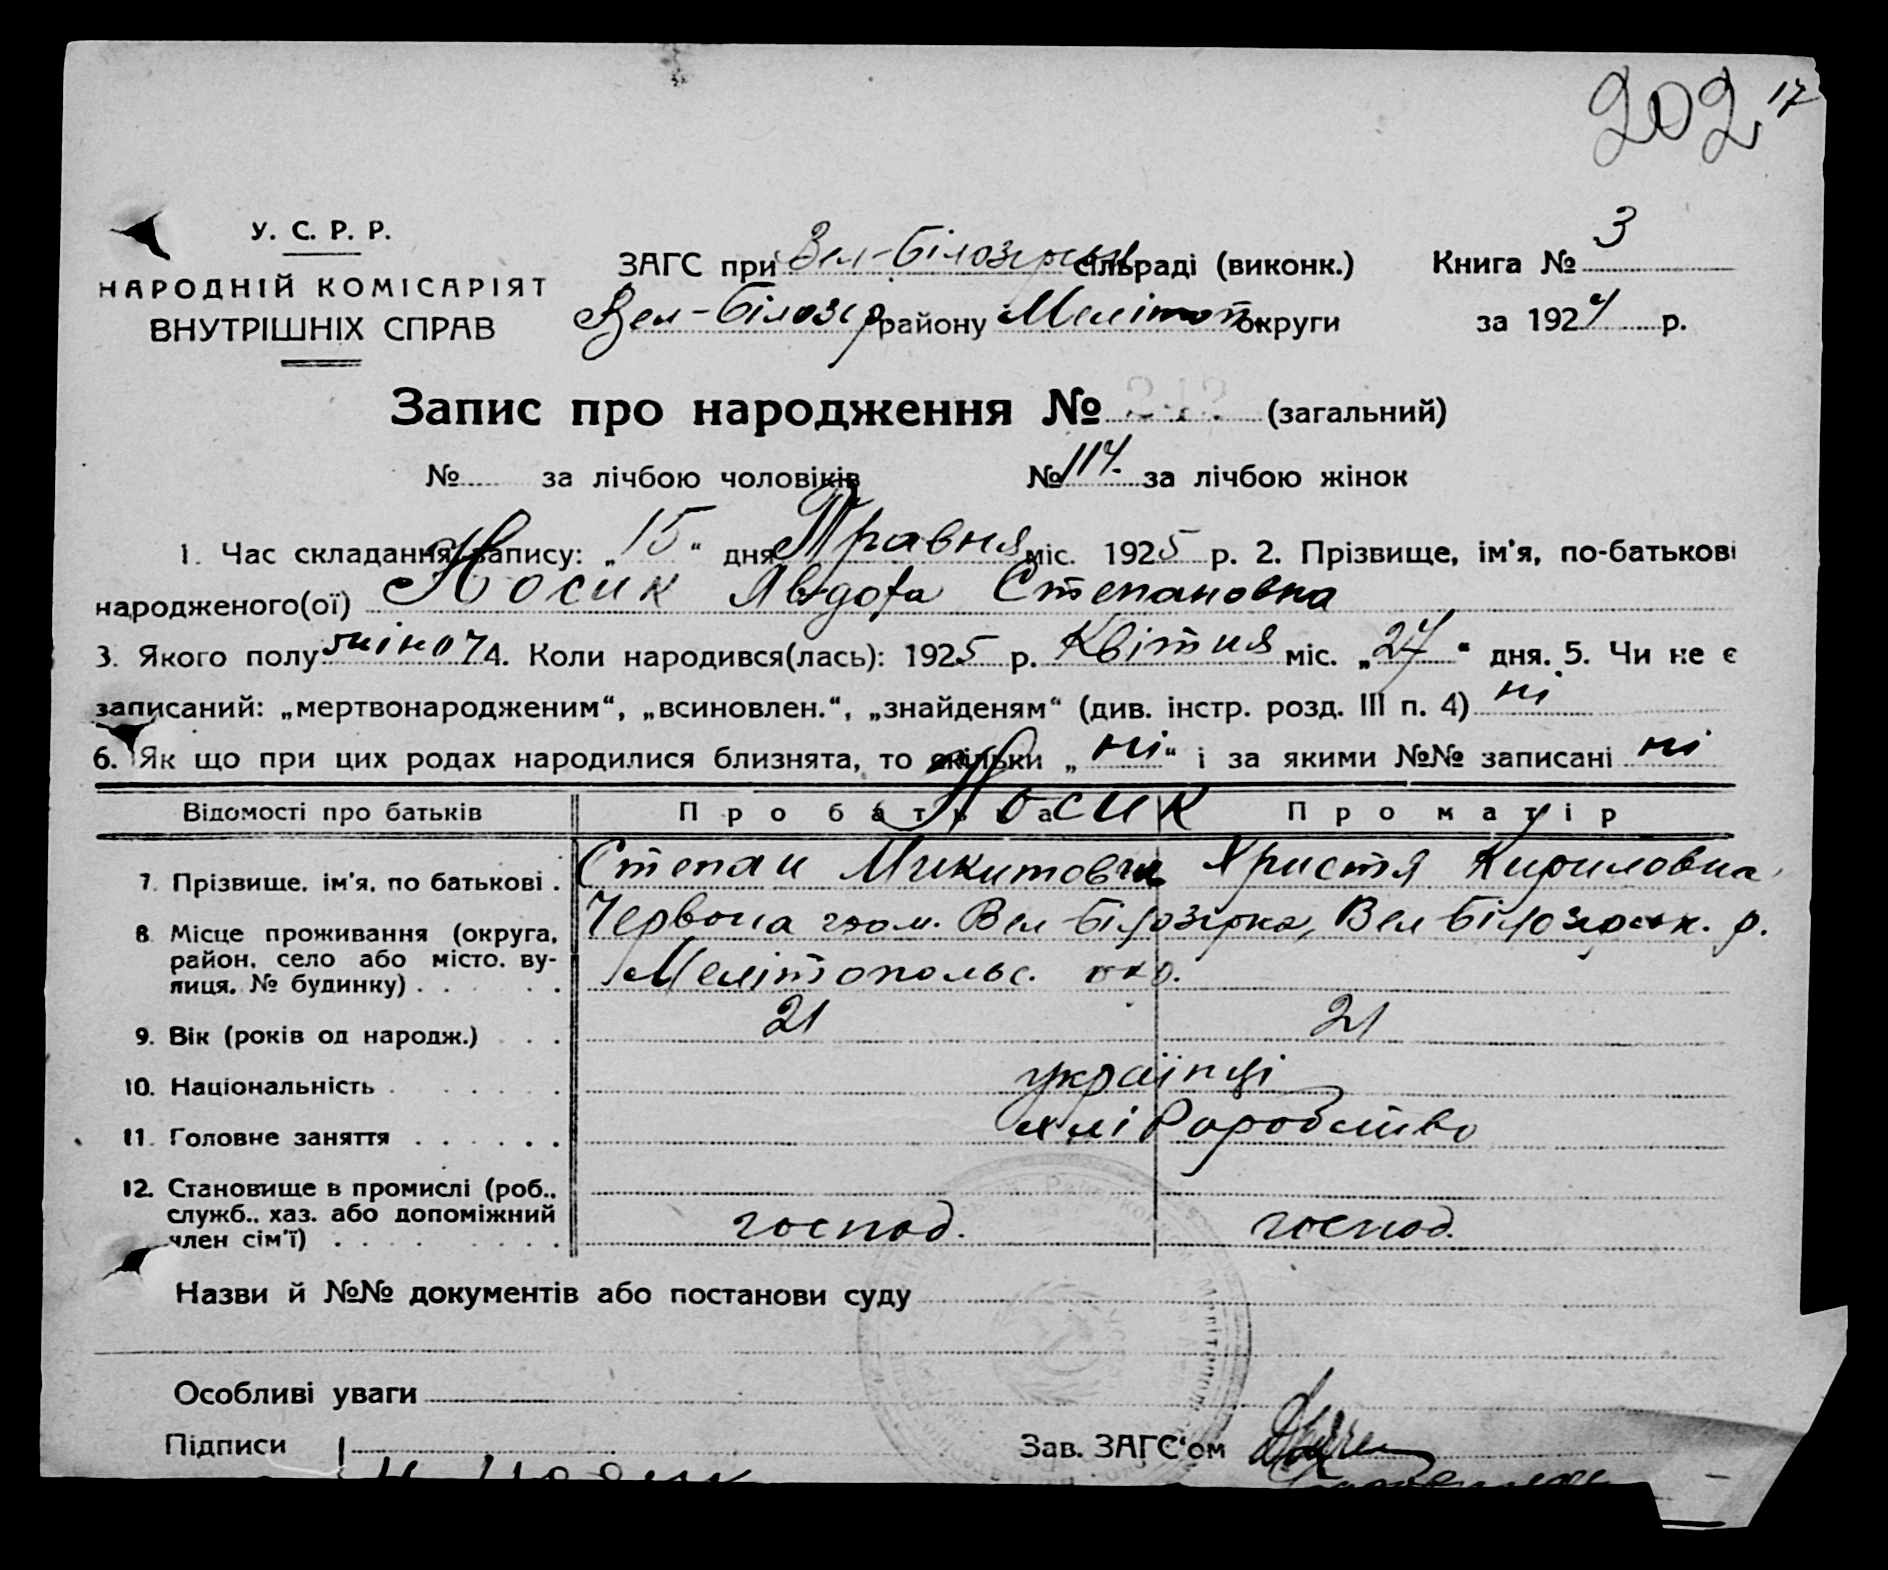 202 17
У. С. Р. Р.
НАРОДНІЙ КОМІСАРІЯТ
ВНУТРІШНІХ СПРАВ
ЗАГС при Вел-Білозірськ сільраді (виконк.)
Вел-Білозір району Мелітоп. округи
Книга № 3
за 1924 р.
Запис про народження № 212 (загальний)
№ за лічбою чоловіків № 114. за лічбою жінок
1. Час складання запису: „15“ дня Травня міс. 1925 р. 2. Прізвище, ім'я, по-батькові
народженого(ої) Носик Явдоха Степановна
3. Якого полу жіноч 4. Коли народився(лась): 1925 р. Квітня міс. „27“ дня. 5. Чи не є
записаний: „мертвонародженим“, „всиновлен.“, „знайденям“ (див. інстр. розд. III п. 4) ні
6. Як що при цих родах народилися близнята, то скільки „ні“ і за якими №№ записані ні
Відомості про батьків Про батька Про матір
Носик
7. Прізвище, ім'я, по батькові . Степан Микитович Христя Кириловна
8. Місце проживання (округа, Червона гром. Вел Білозірка, Вел Білозірськ. р.
район, село або місто, ву-
лиця, № будинку) . . . . . Мелітопольс. окр.
9. Вік (років од народж.) . . . 21 21
10. Національність . . . . . українці
11. Головне заняття . . . . . . хліборобство
12. Становище в промислі (роб.,
служб., хаз. або допоміжний
член сім'ї) . . . . . . . . . господ. господ.
Назви й №№ документів або постанови суду
Особливі уваги
Підписи
Зав. ЗАГС'ом